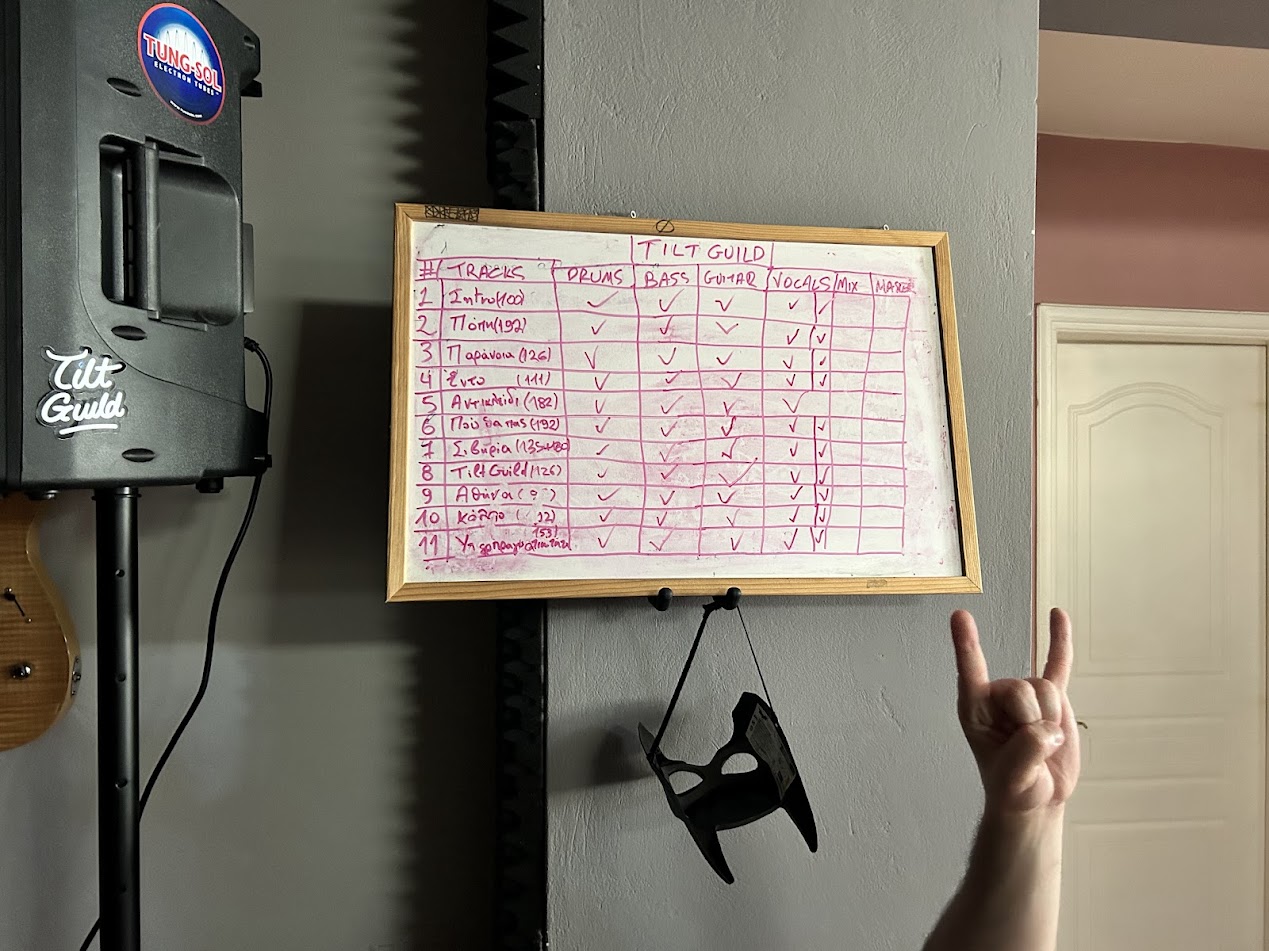 TUNG-SOL
ELECTRON TUBES
Tilt
Guild
TILT GUILD
# TRACKS DRUMS BASS GUITAR VOCALS MIX
1 Intro (100) ✓ ✓ ✓ ✓ ✓
2 Πόπη (192) ✓ ✓ ✓ ✓ ✓
3 Παράνοια (126) ✓ ✓ ✓ ✓ ✓
4 (111) ✓ ✓ ✓ ✓ ✓
5 Αντικλείδι (182) ✓ ✓ ✓ ✓
6 Πού θα πας (192) ✓ ✓ ✓ ✓ ✓
7 Σιβηρία ✓ ✓ ✓ ✓ ✓
8 Tilt Guild (126) ✓ ✓ ✓ ✓ ✓
9 Αθήνα (?) ✓ ✓ ✓ ✓ ✓
10 ✓ ✓ ✓ ✓ ✓
11 (153) ✓ ✓ ✓ ✓ ✓